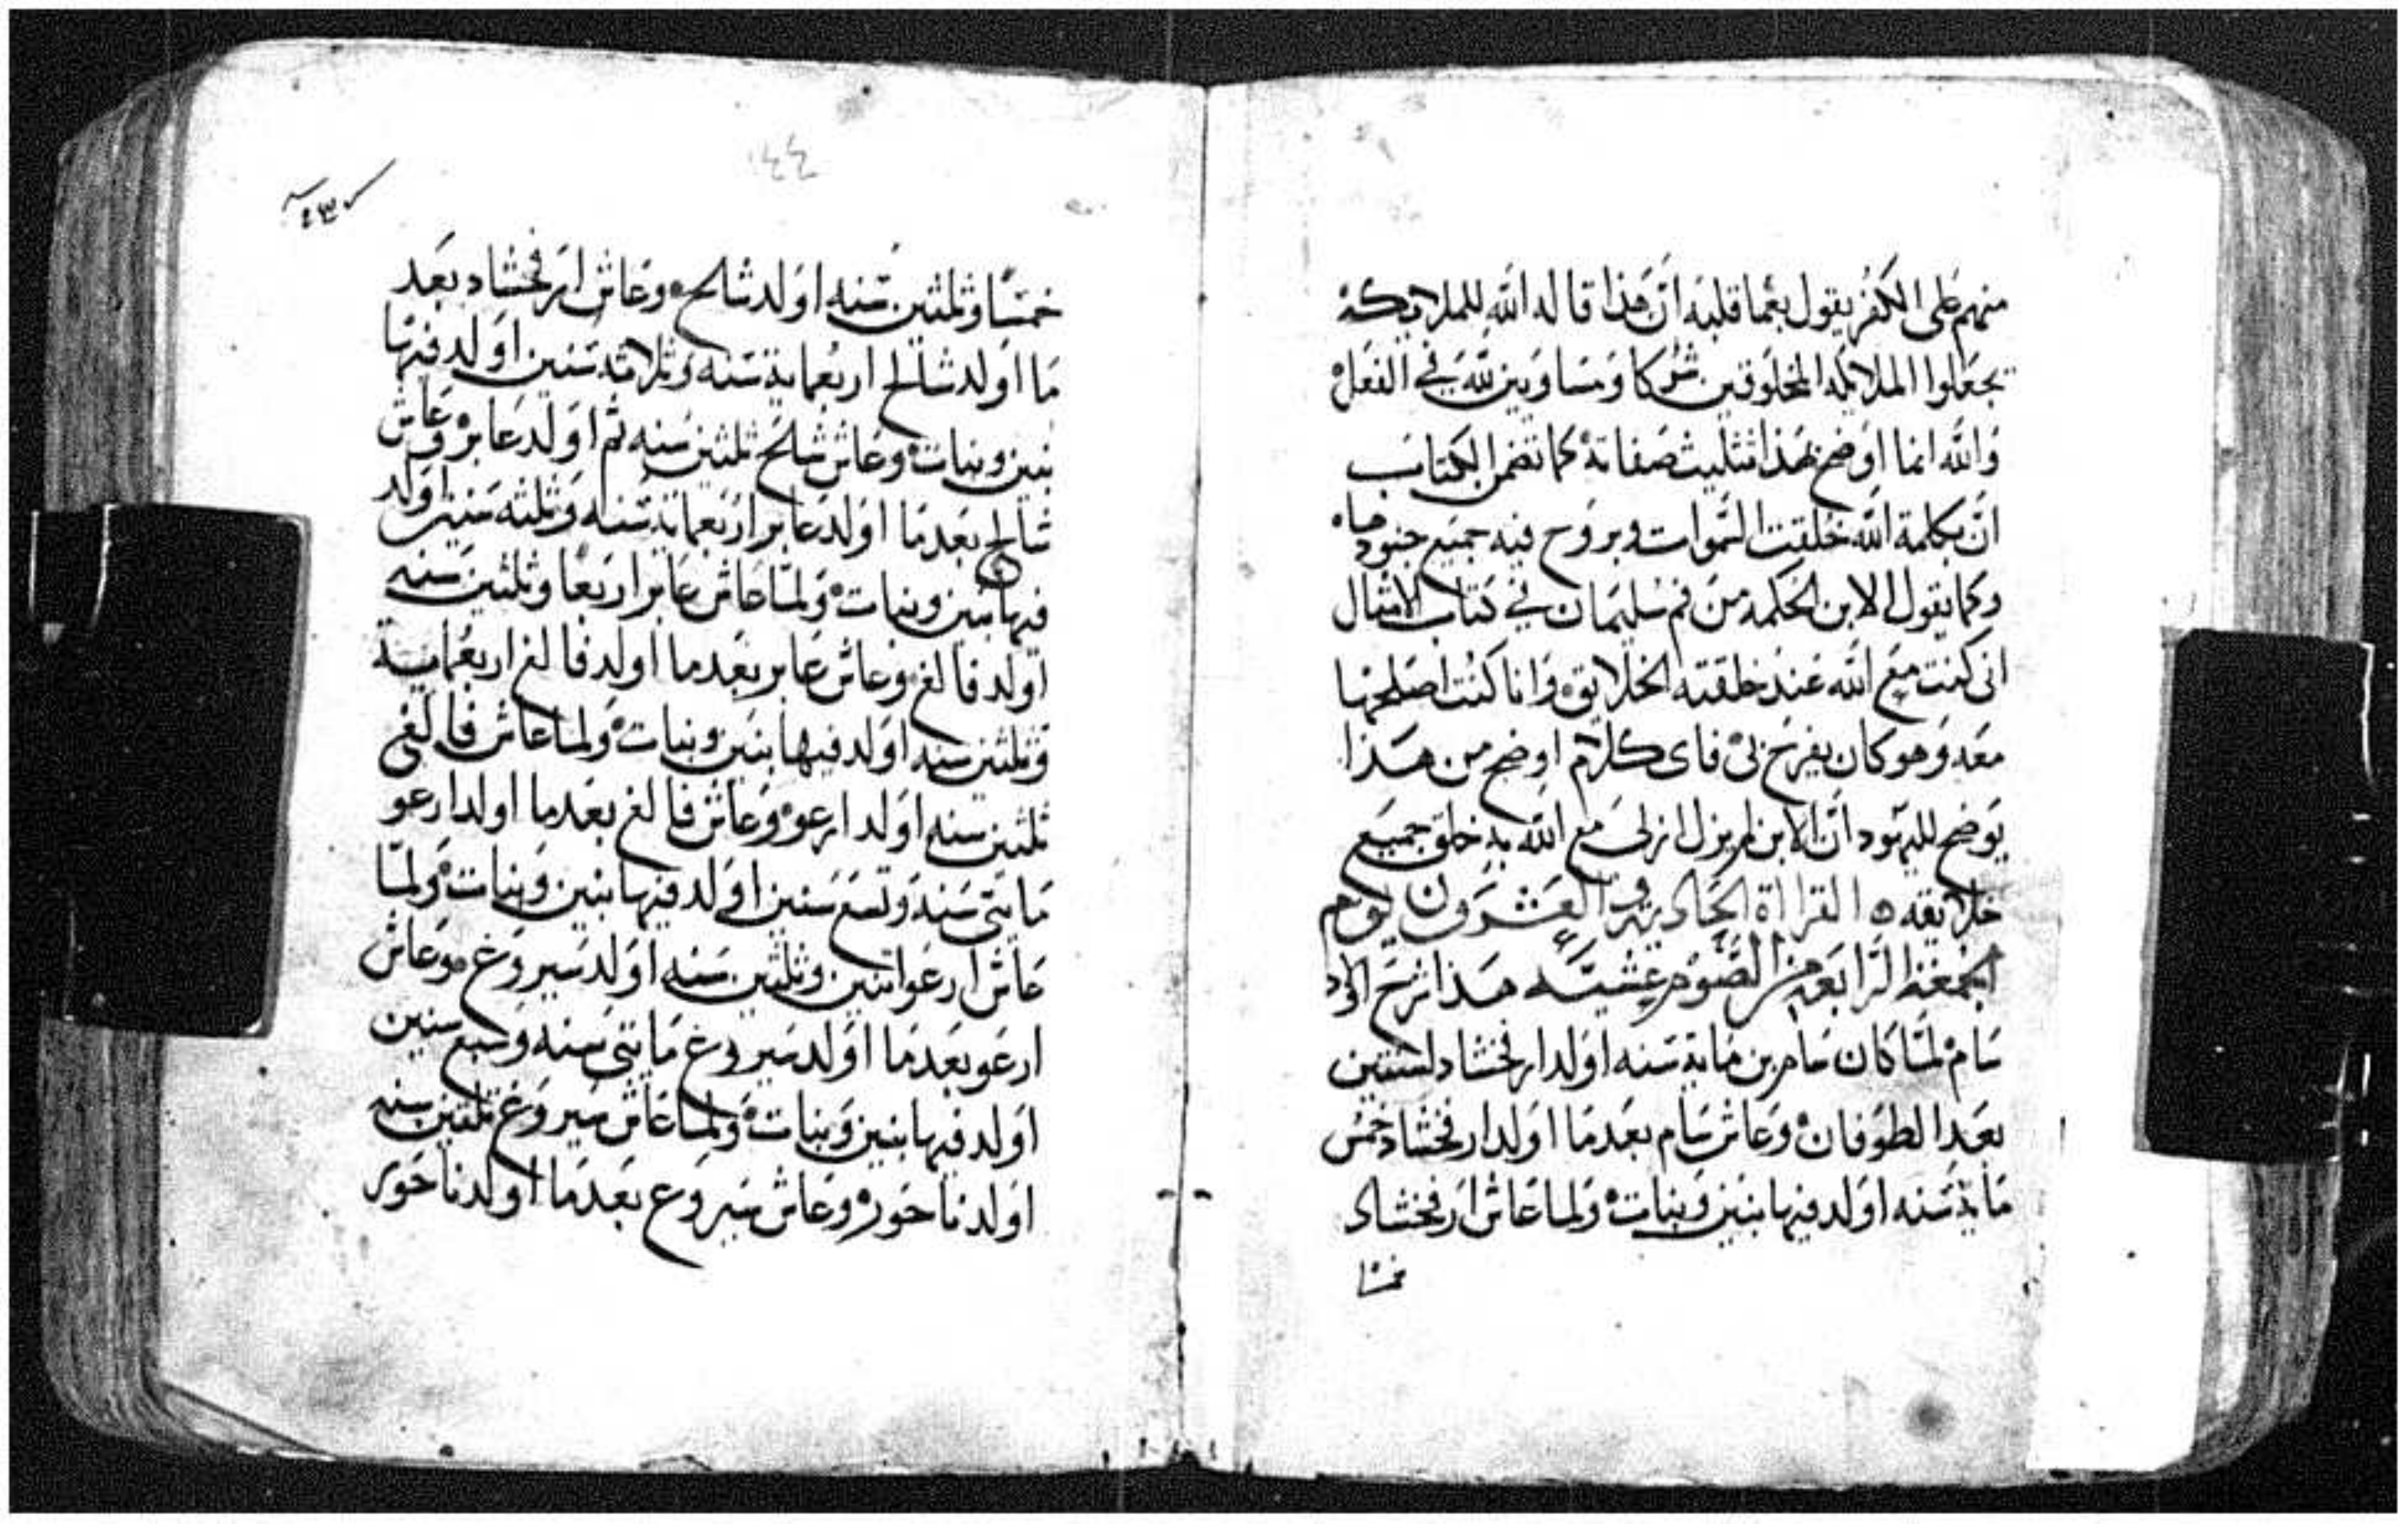 منهم على الكفر يقول بعما قلبه ان هذا قاله الله للملايكه
يجعلوا الملايكه المخلوقين شركا ومساويين لله في الفعل
والله انما اوضح بهذا تثليث صفاته كما تضمن الكتاب
ان بكلمة الله خلقت السموات وبروح فيه جميع جنودها
وكما يقول الابن الحكمه من فم سليمان في كتاب الامثال
انى كنت مع الله عند خلقته الخلايق وانا كنت اصلحها
معه وهو كان يفرح بى فاى كلام اوضح من هذا
يوضح لليهود ان الابن لم يزل ازلى مع الله به خلق جميع
خلايقه ه القرااة الحاديه والعشرون يوم
الجمعة الرابعه من الصوم عشيه هذا شرح اولاد
سام لما كان سام بن ماية سنه اولد ارفخشاد لسنتين
بعد الطوفان وعاش سام بعدما اولد ارفخشاد خمس
ماية سنه اولد فيها بنين وبنات ولما عاش ارفخشاد
خمسا
١٤٤
خمسا وثلثين سنه اولد شالح وعاش ارفخشاد بعد
ما اولد شالح اربعماية سنه وثلاثة سنين اولد فيها
بنين وبنات وعاش شالح ثلثين سنه ثم اولد عابر وعاش
شالح بعد ما اولد عابر اربعماية سنه وثلثه سنين اولد
فيها بنين وبنات ولما عاش عابر اربعا وثلثين سنه
اولد فالغ وعاش عابر بعد ما اولد فالغ اربعماية
وثلثين سنه اولد فيها بنين وبنات ولما عاش فالغ
ثلثين سنه اولد ارعو وعاش فالغ بعد ما اولد ارعو
مايتى سنه وتسع سنين اولد فيها بنين وبنات ولما
عاش ارعو اثنين وثلثين سنه اولد سيروغ وعاش
ارعو بعد ما اولد سيروغ مايتى سنه وسبع سنين
اولد فيها بنين وبنات ولما عاش سيروغ ثلثين سنه
اولد ناحور وعاش سيروع بعد ما اولد ناحور